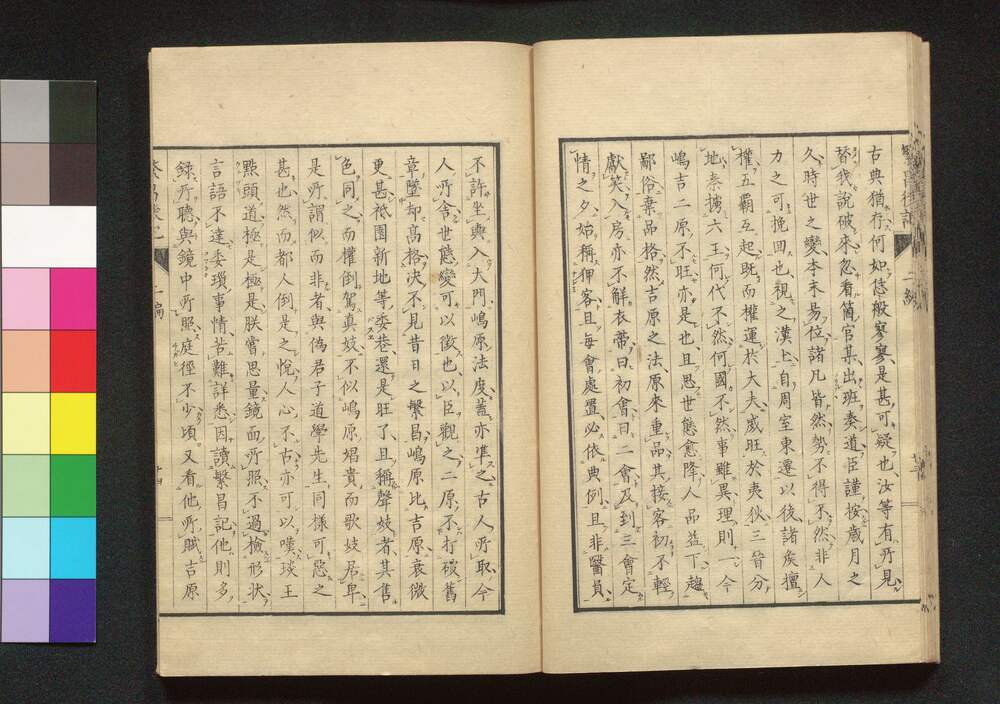 古典猶行何如恁般寥寥是甚可疑也汝等有所見
替我說破來忽看箇官某出班奏道臣謹按歲月之
久時世之變本末易位諸凡皆然勢不得不然非人
力之可挽回也視之漢上自周室東遷以後諸矦擅
權五霸互起既而權運於大夫威旺於夷狄三晉分
地秦擄六王何代不然何國不然事雖異理則一今
嶋吉二原不旺亦是也且思世態愈降人品益下趨
鄙俗棄品格然吉原之法原來重品其接客初不輕
獻笑入房亦不解衣帶曰初會曰二會及到三會定
情之夕始稱狎客且每會處置必依典例且非醫員
不許坐輿入大門嶋原法度蓋亦準之古人所取今
人所舍世態變可以徵也以臣觀之二原不打破舊
章墜却高格決不見昔日之繁昌嶋原比吉原衰微
更甚祗園新地等委巷還是旺了且稱聲妓者其售
色同之而權倒駕真妓不似嶋原娼貴而歌妓居卑
是所謂似而非者與偽君子道學先生同樣可惡之
甚也然而都人倒是之悅人心不古亦可以嘆琰王
點頭道極是極是朕嘗思量鏡面所照不過檢形狀
言語不達委瑣事情苦難詳悉因讀繁昌記他則多
錄所聽與鏡中所照庭徑不少頃又看他所賦吉原